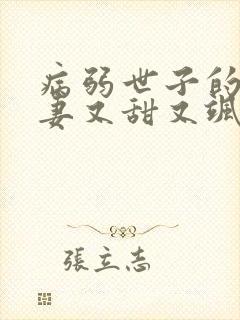 病弱世子的
妻又甜又飒
張立志